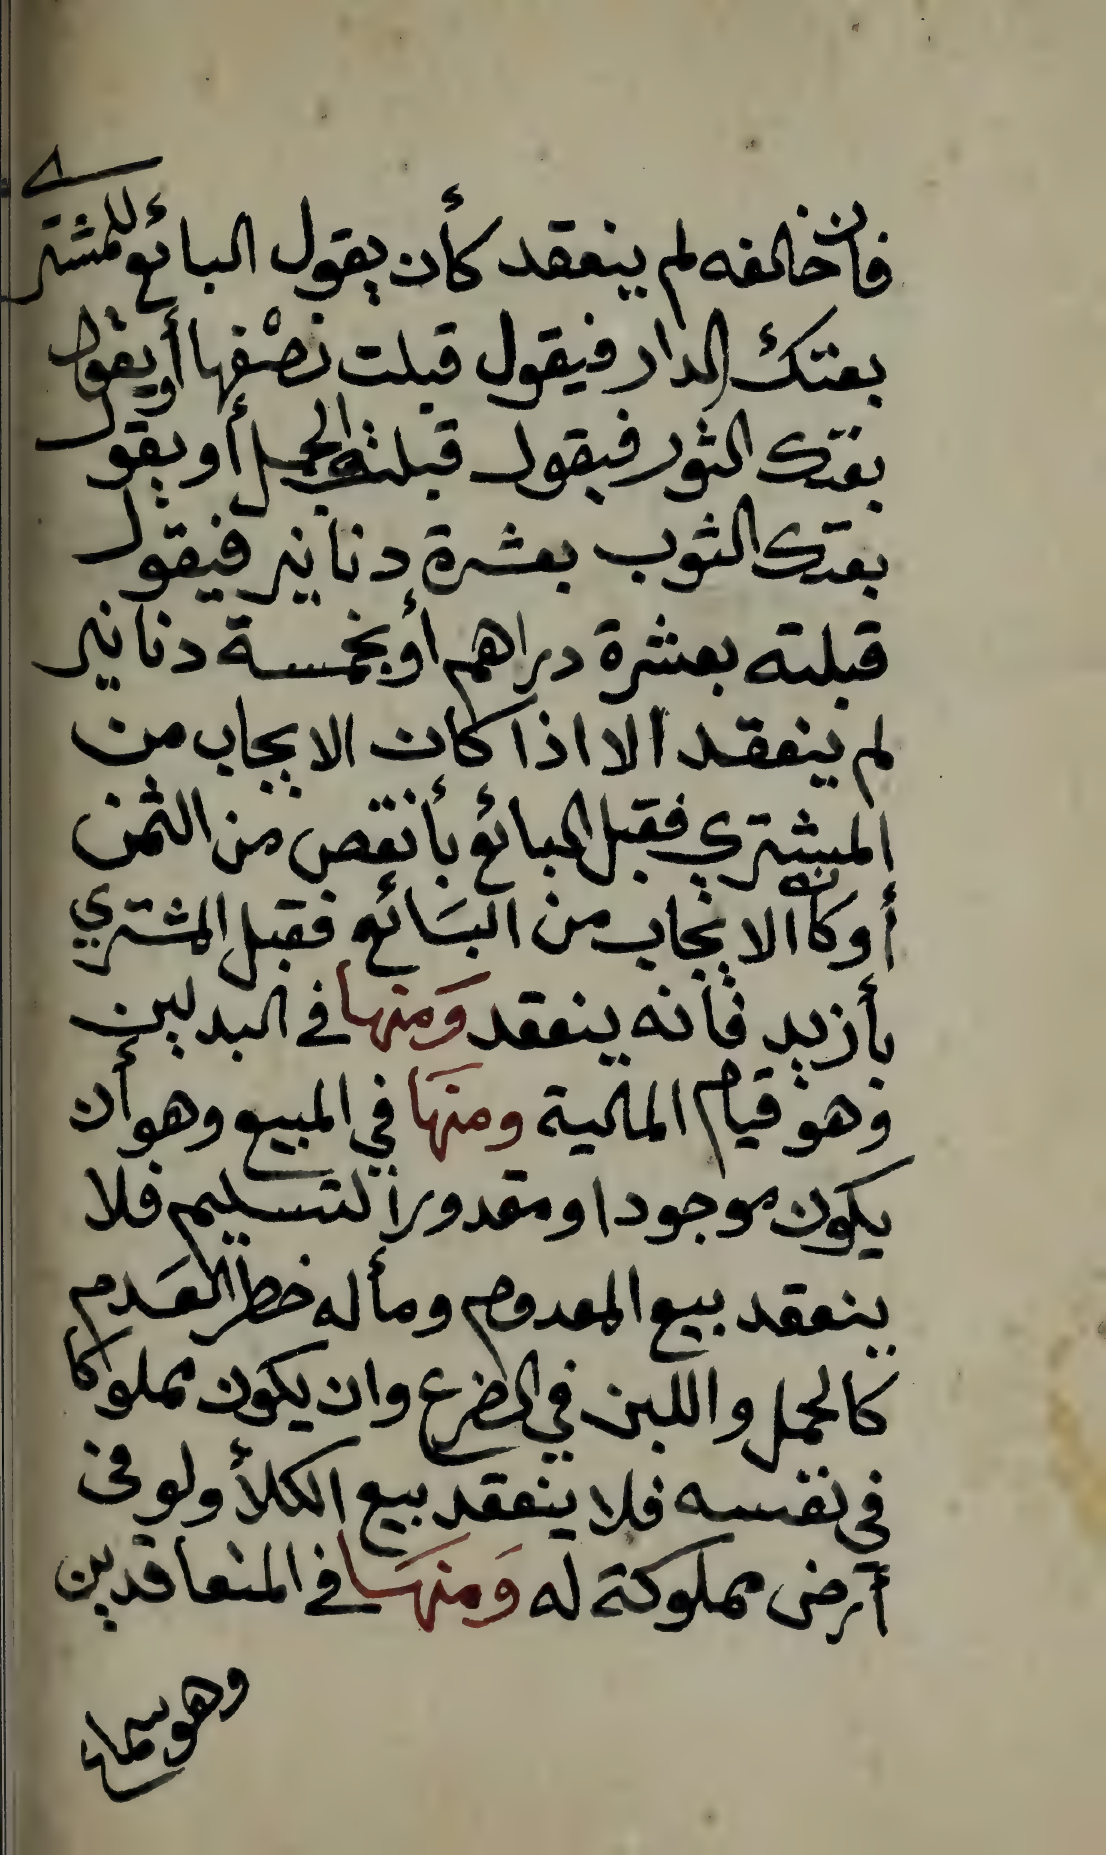 فان خالفه لم ينعقد كأن يقول البائع للمشتري
بعتك الدار فيقول قبلت نصْفها أو يقول
بعتك الثور فيقول قبلت الجمل أو يقول
بعتك الثوب بعشرة دنانير فيقول
قبلته بعشرة دراهم أو بخمسة دنانير
لم ينعقد الا اذا كان الايجاب من
المشتري فقبل البائع بأنقص من الثمن
أو كان الايجاب من البَائع فقبل المشتري
بأزيد فانه ينعقد وَمنها في البدلين
وهو قيام المالية ومنهَا في المبيع وهو أن
يكون موجودا ومقدور التسليم فلا
ينعقد بيع المعدوم وماله خطر العَدم
كالحمل واللبن في الضرع وان يكون مملوكا
في نفسه فلا ينعقد بيع الكلأ ولو في
أرض مملوكة له وَمنهَا في المتعاقدين
وهو سماع